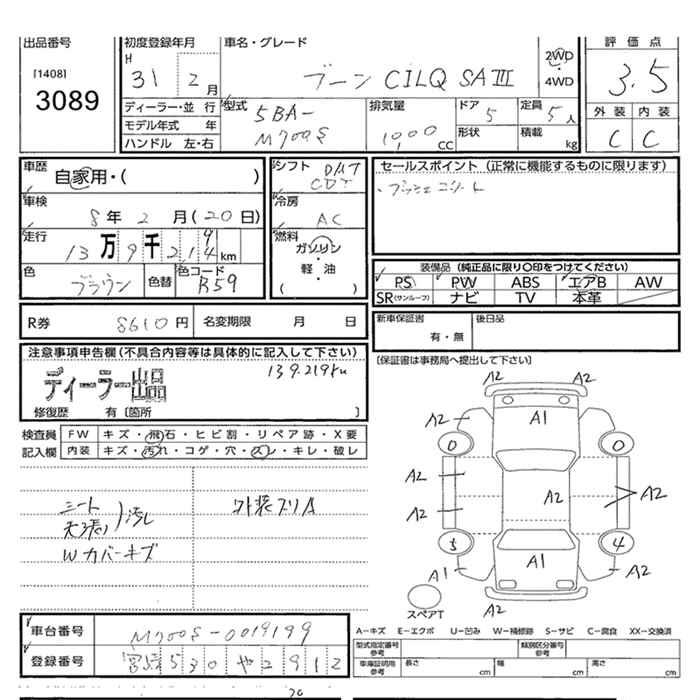 出品番号
[1408]
3089
初度登録年月
H
31 年 2 月
車名・グレード
ブーン CILQ SAⅢ
2WD
・
4WD
評価点
3.5
外装 内装
C C
ディーラー・並行
モデル年式 年
ハンドル 左・右
型式
5BA-
M700S
排気量
1000 CC
ドア
5
形状
定員
5 人
積載
kg
車歴
自家用・( )
車検
8年 2 月(20日)
走行
13万9千214km
色
ブラウン
色替
色コード
R59
シフト
CDT
冷房
AC
燃料
ガソリン
軽・油
( )
セールスポイント(正常に機能するものに限ります)
装備品(純正品に限り○印をつけてください)
PS PW ABS エアB AW
SR(サンルーフ) ナビ TV 本革
R券 8610円 名変期限 月 日
新車保証書
有・無
後日品
注意事項申告欄(不具合内容等は具体的に記入して下さい)
139.219km
ディーラー出品
修復歴 有〔箇所 〕
〔保証書は事務局へ提出して下さい〕
検査員
記入欄
FW キズ・飛石・ヒビ割・リペア跡・X要
内装 キズ・汚れ・コゲ・穴・スレ・キレ・破レ
シート
天張り 汚し
Wカバーキズ
外装スリA
A2 A2
A2 A1 A2
0 0
A2 A2 A2
A2
5 4
A1 A1 A2
A2 A2
スペアT
車台番号 M700S-0019199
登録番号 宮崎530や2912
A-キズ E-エクボ U-凹み W-補修跡 S-サビ C-腐食 XX-交換済
型式指定番号
参考
類別区分番号
参考
車庫証明用
参考
長さ cm 幅 cm 高さ cm